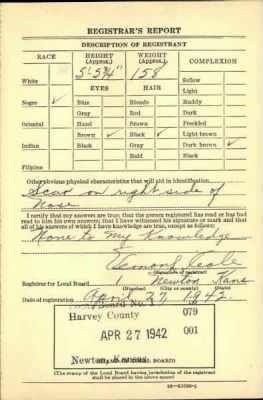 REGISTRAR'S REPORT
DESCRIPTION OF REGISTRANT
RACE HEIGHT (Approx.) WEIGHT (Approx.) COMPLEXION
5' 5¾" 158
White Sallow
EYES HAIR Light
Negro ✓ Blue Blonde Ruddy
Gray Red Dark
Oriental Hazel Brown Freckled
Brown ✓ Black ✓ Light brown ✓
Indian Black Gray Dark brown
Bald Black
Filipino
Other obvious physical characteristics that will aid in identification
Scar on right side of
Nose
I certify that my answers are true; that the person registered has read or has had
read to him his own answers; that I have witnessed his signature or mark and that
all of his answers of which I have knowledge are true, except as follows:
None to My Knowledge
(Signature of registrar)
Registrar for Local Board Newton Kans
(Number) (City or county) (State)
Date of registration 27 1942
Board No. 1 079
Harvey County
APR 27 1942 001
Newton, Kansas
(STAMP OF LOCAL BOARD)
(The stamp of the Local Board having jurisdiction of the registrant
shall be placed in the above space.)